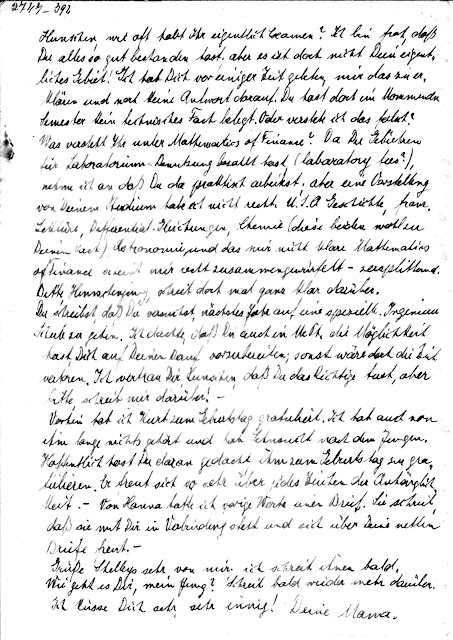 2747-392
Hunschen wie oft habt Ihr eigentlich Examen? Ich bin froh, daß
Du alles so gut bestanden hast, aber es ist doch nicht Dein eigent-
liches Gebiet! Ich hab Dich vor einiger Zeit gebeten, mir das zu er-
klären und noch keine Antwort darauf. Du hast doch im kommenden
Semester kein technisches Fach belegt. Oder versteh ich das falsch?
Was versteht Ihr unter Mathematics of Finance? Da Du Gebühren
für Laboratorium-Benutzung bezahlt hast (Labavatory fees?),
nehm ich an daß Du da praktisch arbeitest, aber eine Vorstellung
von Deinem Studium hab ich nicht recht. U.S.A Geschichte, franz.
Lektüre, Differential-Gleichungen, Chemie (diese beiden wohl zu
Deinem Fach), Astronomie, und das mir nicht klare Mathematics
of Finance scheint mir recht zusammengewürfelt - zersplitternd.
Bitte Hunschenjung, schreib doch mal ganz klar darüber.
Du schreibst, daß Du vorhast, nächstes Jahr auf eine spezielle Ingenieur
Schule zu gehen. Ich dachte, daß Du auch in die Möglichkeit
hast, Dich auf Deinen Beruf vorzubereiten; sonst wäre doch die Zeit
verloren. Ich vertrau Dir Hunschen, daß Du das Richtige tust, aber
bitte schreib mir darüber! -
Vorhin hab ich Kurt zum Geburtstag gratuliert. Ich hab auch von
ihm lange nichts gehört und hab Sehnsucht nach dem Jungen.
Hoffentlich hast Du daran gedacht ihm zum Geburtstag zu gra-
tulieren. Er freut sich so sehr über jedes Zeichen der Anhänglich-
keit. - Von Hanna hatte ich vorige Woche einen Brief. Sie schreibt,
daß sie mit Dir in Verbindung steht und sich über Deine netten
Briefe freut. -
Grüße Shelleys sehr von mir. ich schreib ihnen bald.
Wie geht es Dir, mein Jung? Schreib bald wieder mehr darüber.
Ich küsse Dich sehr, sehr innig! Deine Mama.